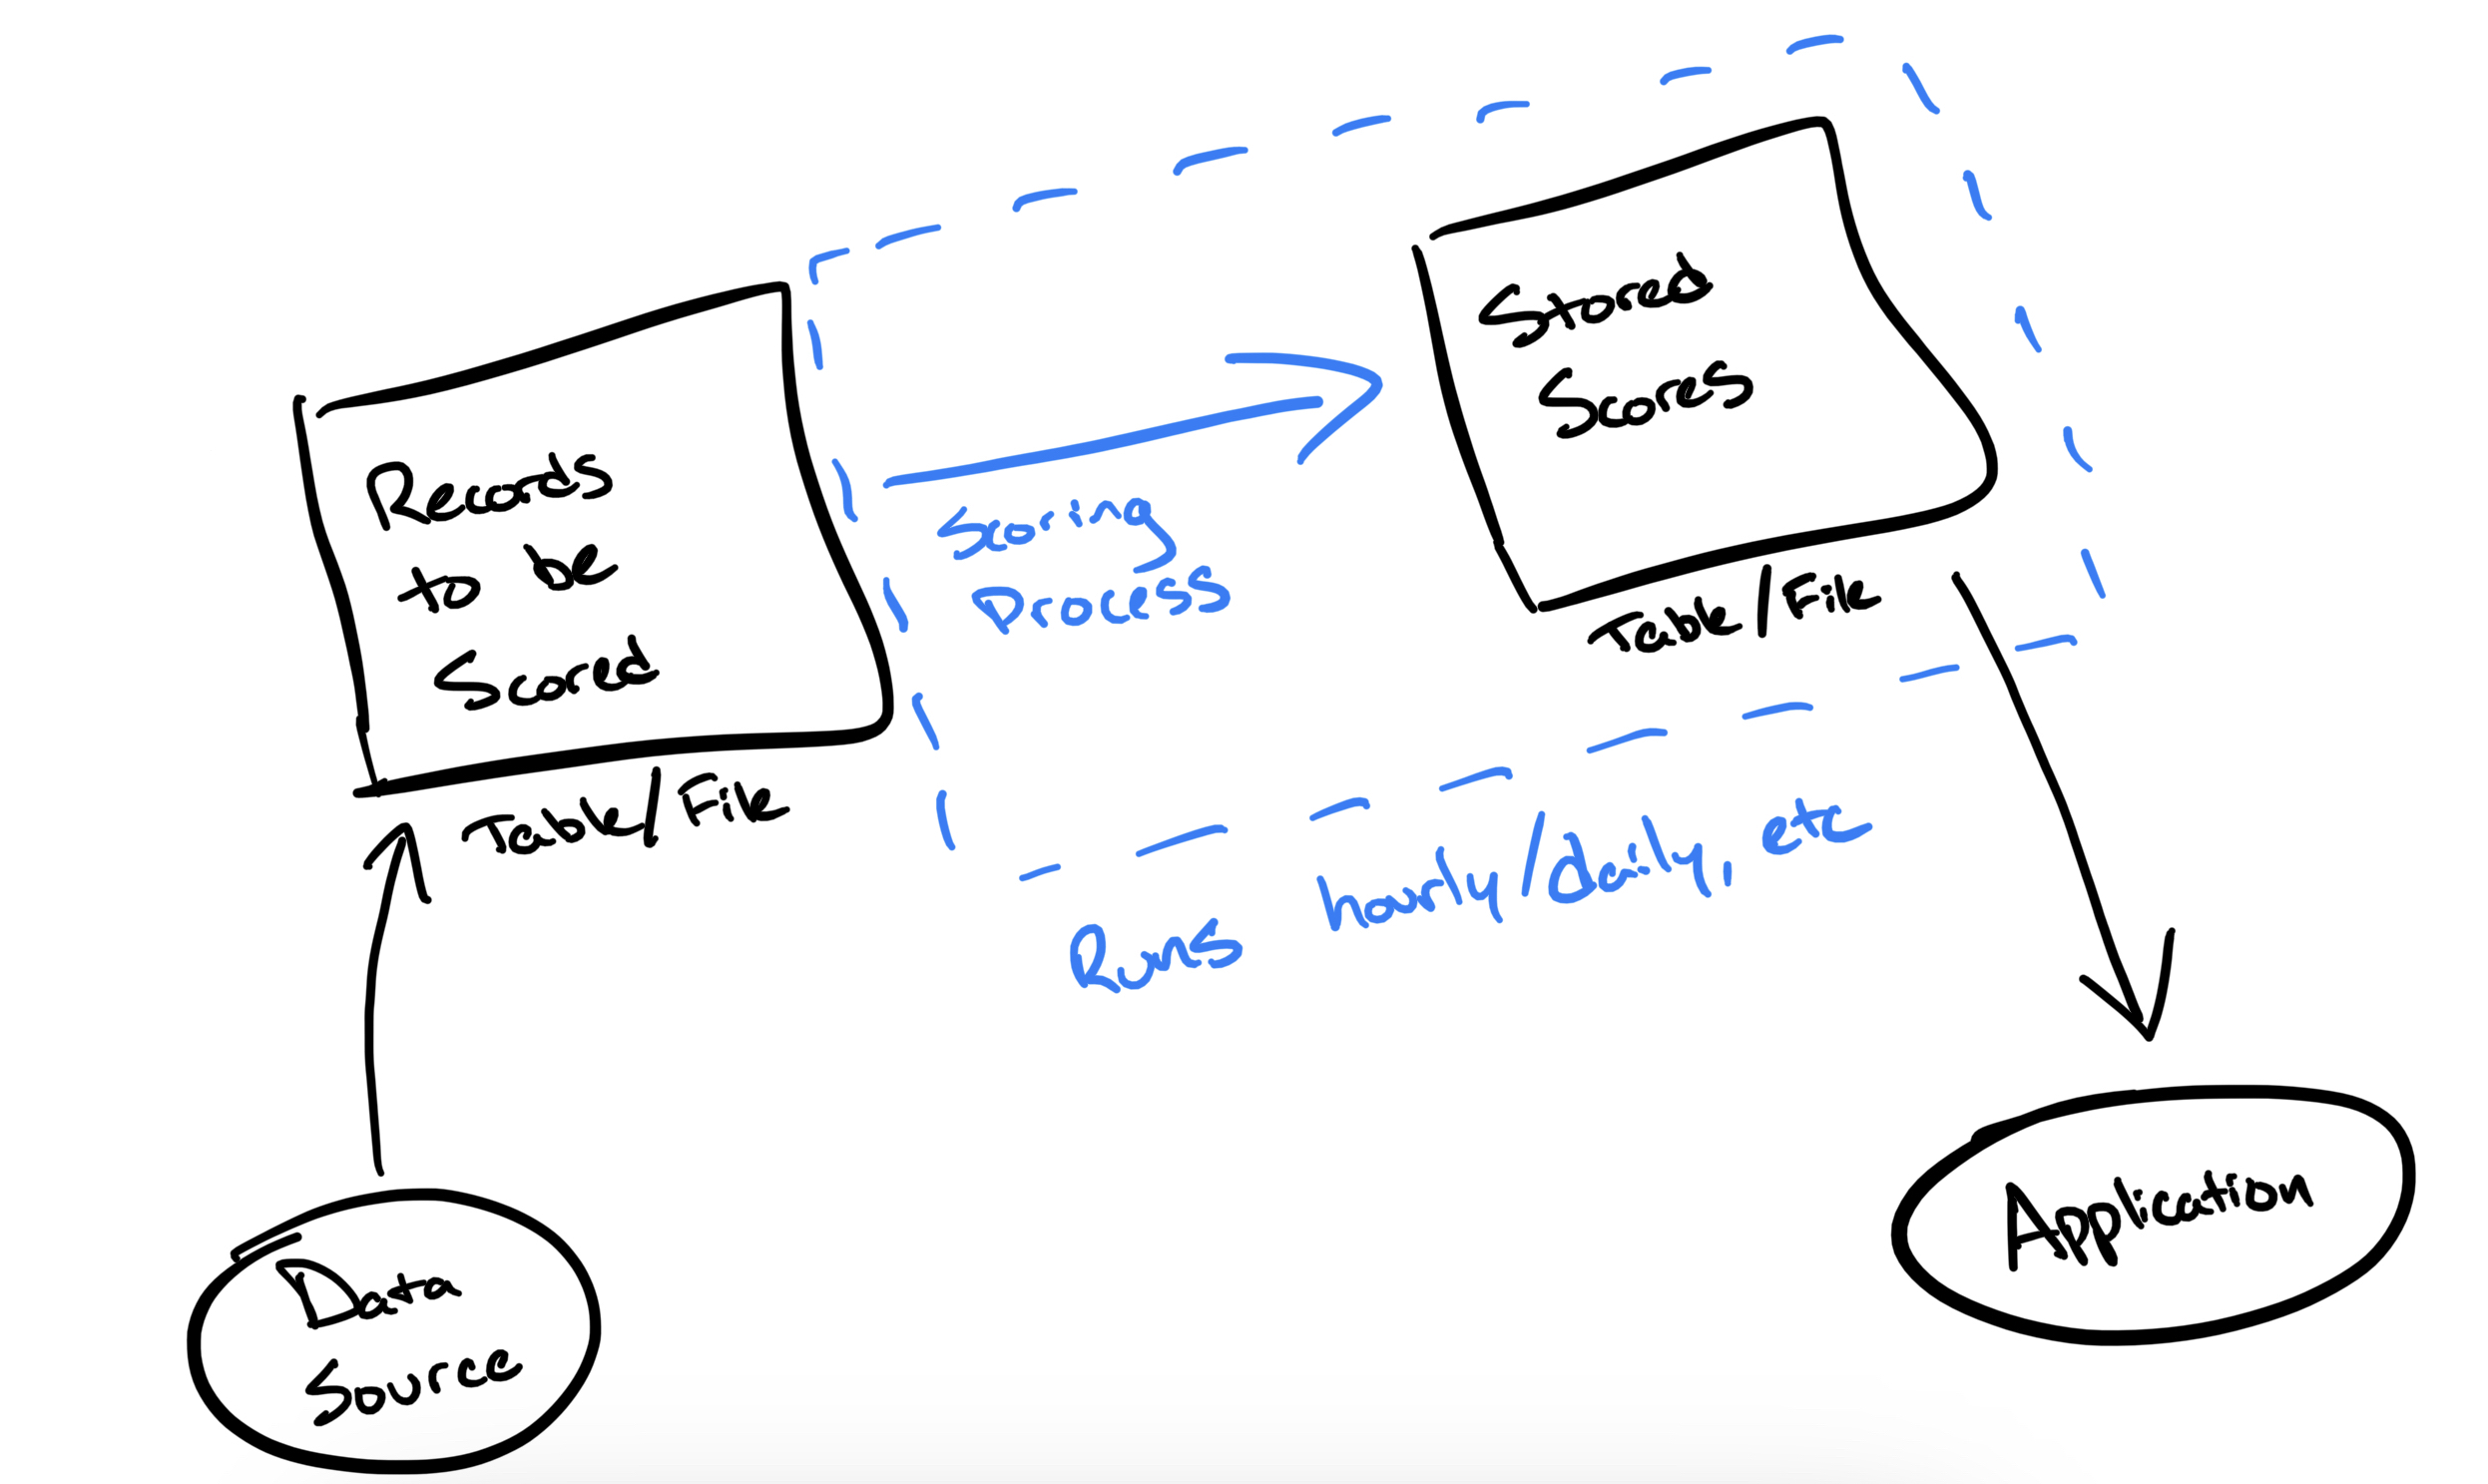 Records
to be
Scored
Table/File
Scoring
Process
Stored
Scores
Table/File
Runs hourly/daily, etc
Data
Source
Application